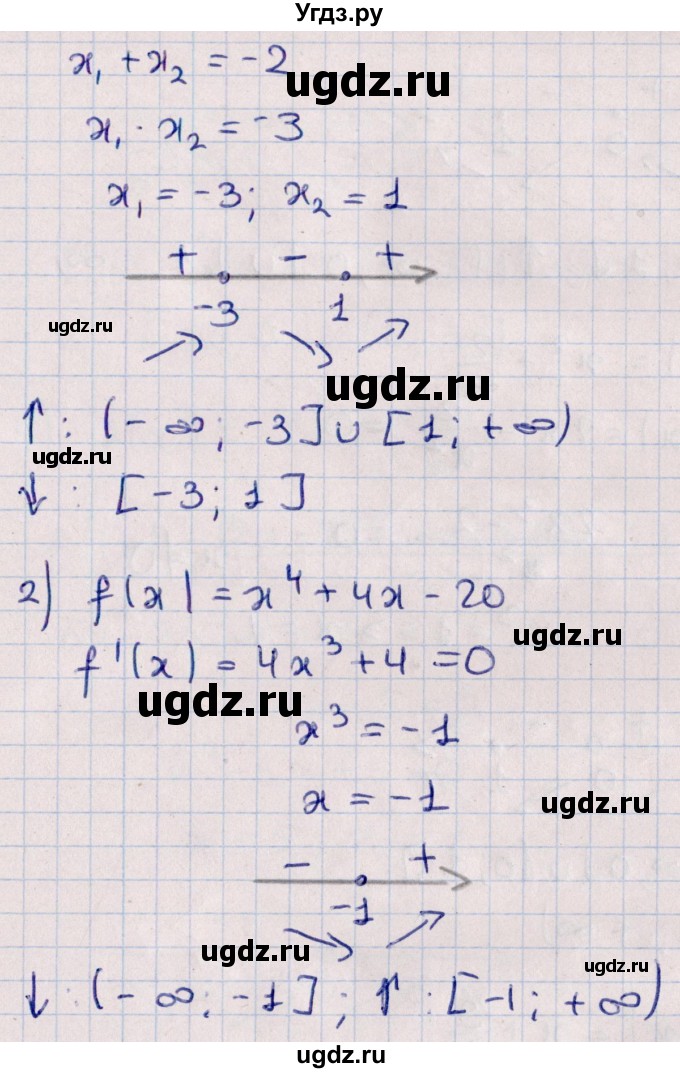 Угдз.ру
x₁ + x₂ = -2
ugdz.ru
x₁ · x₂ = -3
x₁ = -3; x₂ = 1
+ - +
-3 1
ugdz.ru
ugdz.ru
↑: (-∞; -3] ∪ [1; +∞)
ugdz.ru
↓: [-3; 1]
2) f(x) = x⁴ + 4x - 20
ugdz.ru
f'(x) = 4x³ + 4 = 0
ugdz.ru
x³ = -1
x = -1
ugdz.ru
- +
-1
ugdz.ru
ugdz.ru
↓: (-∞; -1]; ↑: [-1; +∞)
ugdz.ru